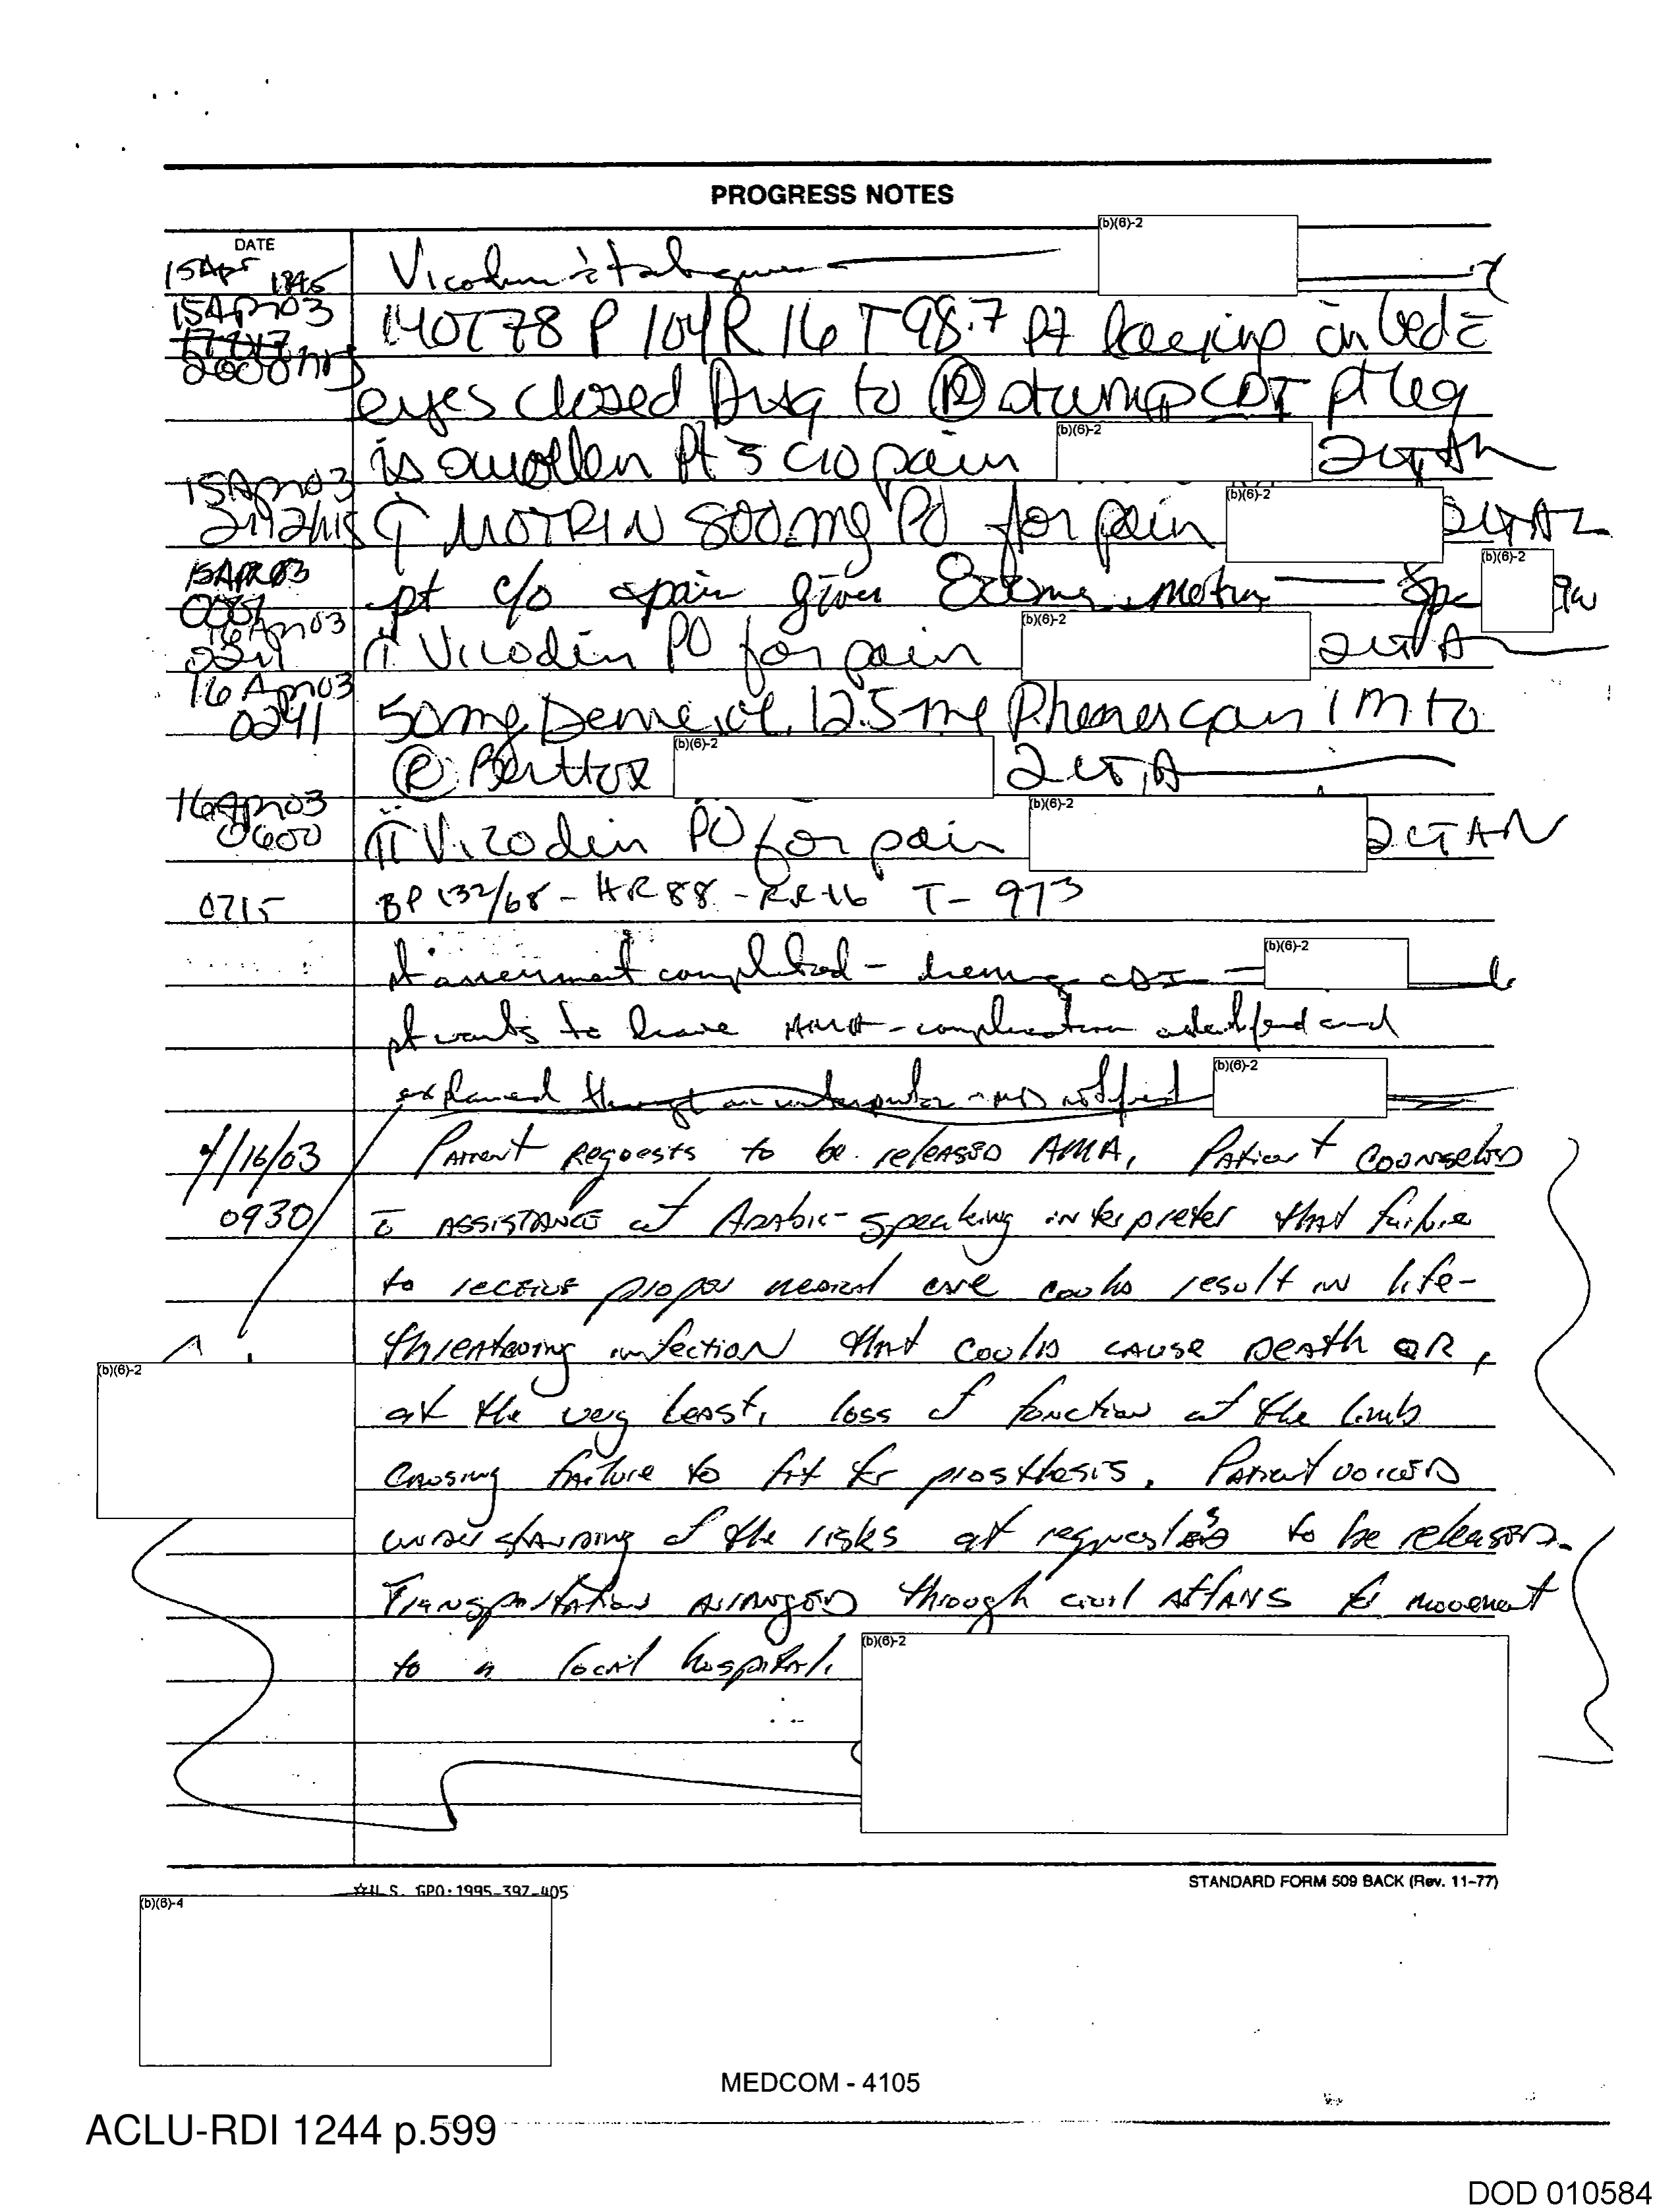 PROGRESS NOTES
(b)(6)-2
DATE
15Apr 1845 Vicodin
15Apr03 140/78 P 104 R 16 T 98.7 Pt in bed c̄
2000hrs eyes closed Drsg to Ⓡ stump CDI pt leg
is swollen Pt s̄ c/o pain (b)(6)-2 2LT, AN
15Apr03
2112hrs † MOTRIN 800mg PO for pain (b)(6)-2
15APR03 pt c/o pain given 800mg motrin (b)(6)-2
16Apr03 †† Vicodin PO for pain (b)(6)-2
16Apr03
0241 50mg Demerol, 12.5mg Phenergan IM to
Ⓡ Buttox (b)(6)-2
16Apr03
0600 †† Vicodin PO for pain (b)(6)-2 2LT AN
0715 BP 132/68 - HR 88 - RR 16 T- 973
pt assessment completed - dressing CDI (b)(6)-2
pt wants to leave AMA - complication and
explained through an interpreter - MD notified (b)(6)-2
4/16/03 Patient requests to be released AMA. Patient counseled
0930 c̄ assistance of Arabic-speaking interpreter that failure
to receive proper medical care could result in life-
threatening infection that could cause death OR,
(b)(6)-2
at the very least, loss of function of the limb
causing failure to fit for prosthesis. Patient voiced
understanding of the risks requests to be released.
Transportation arranged through civil affairs for movement
to a local hospital. (b)(6)-2
☆U.S. GPO: 1995-397-405
STANDARD FORM 509 BACK (Rev. 11-77)
(b)(6)-4
MEDCOM - 4105
ACLU-RDI 1244 p.599
DOD 010584